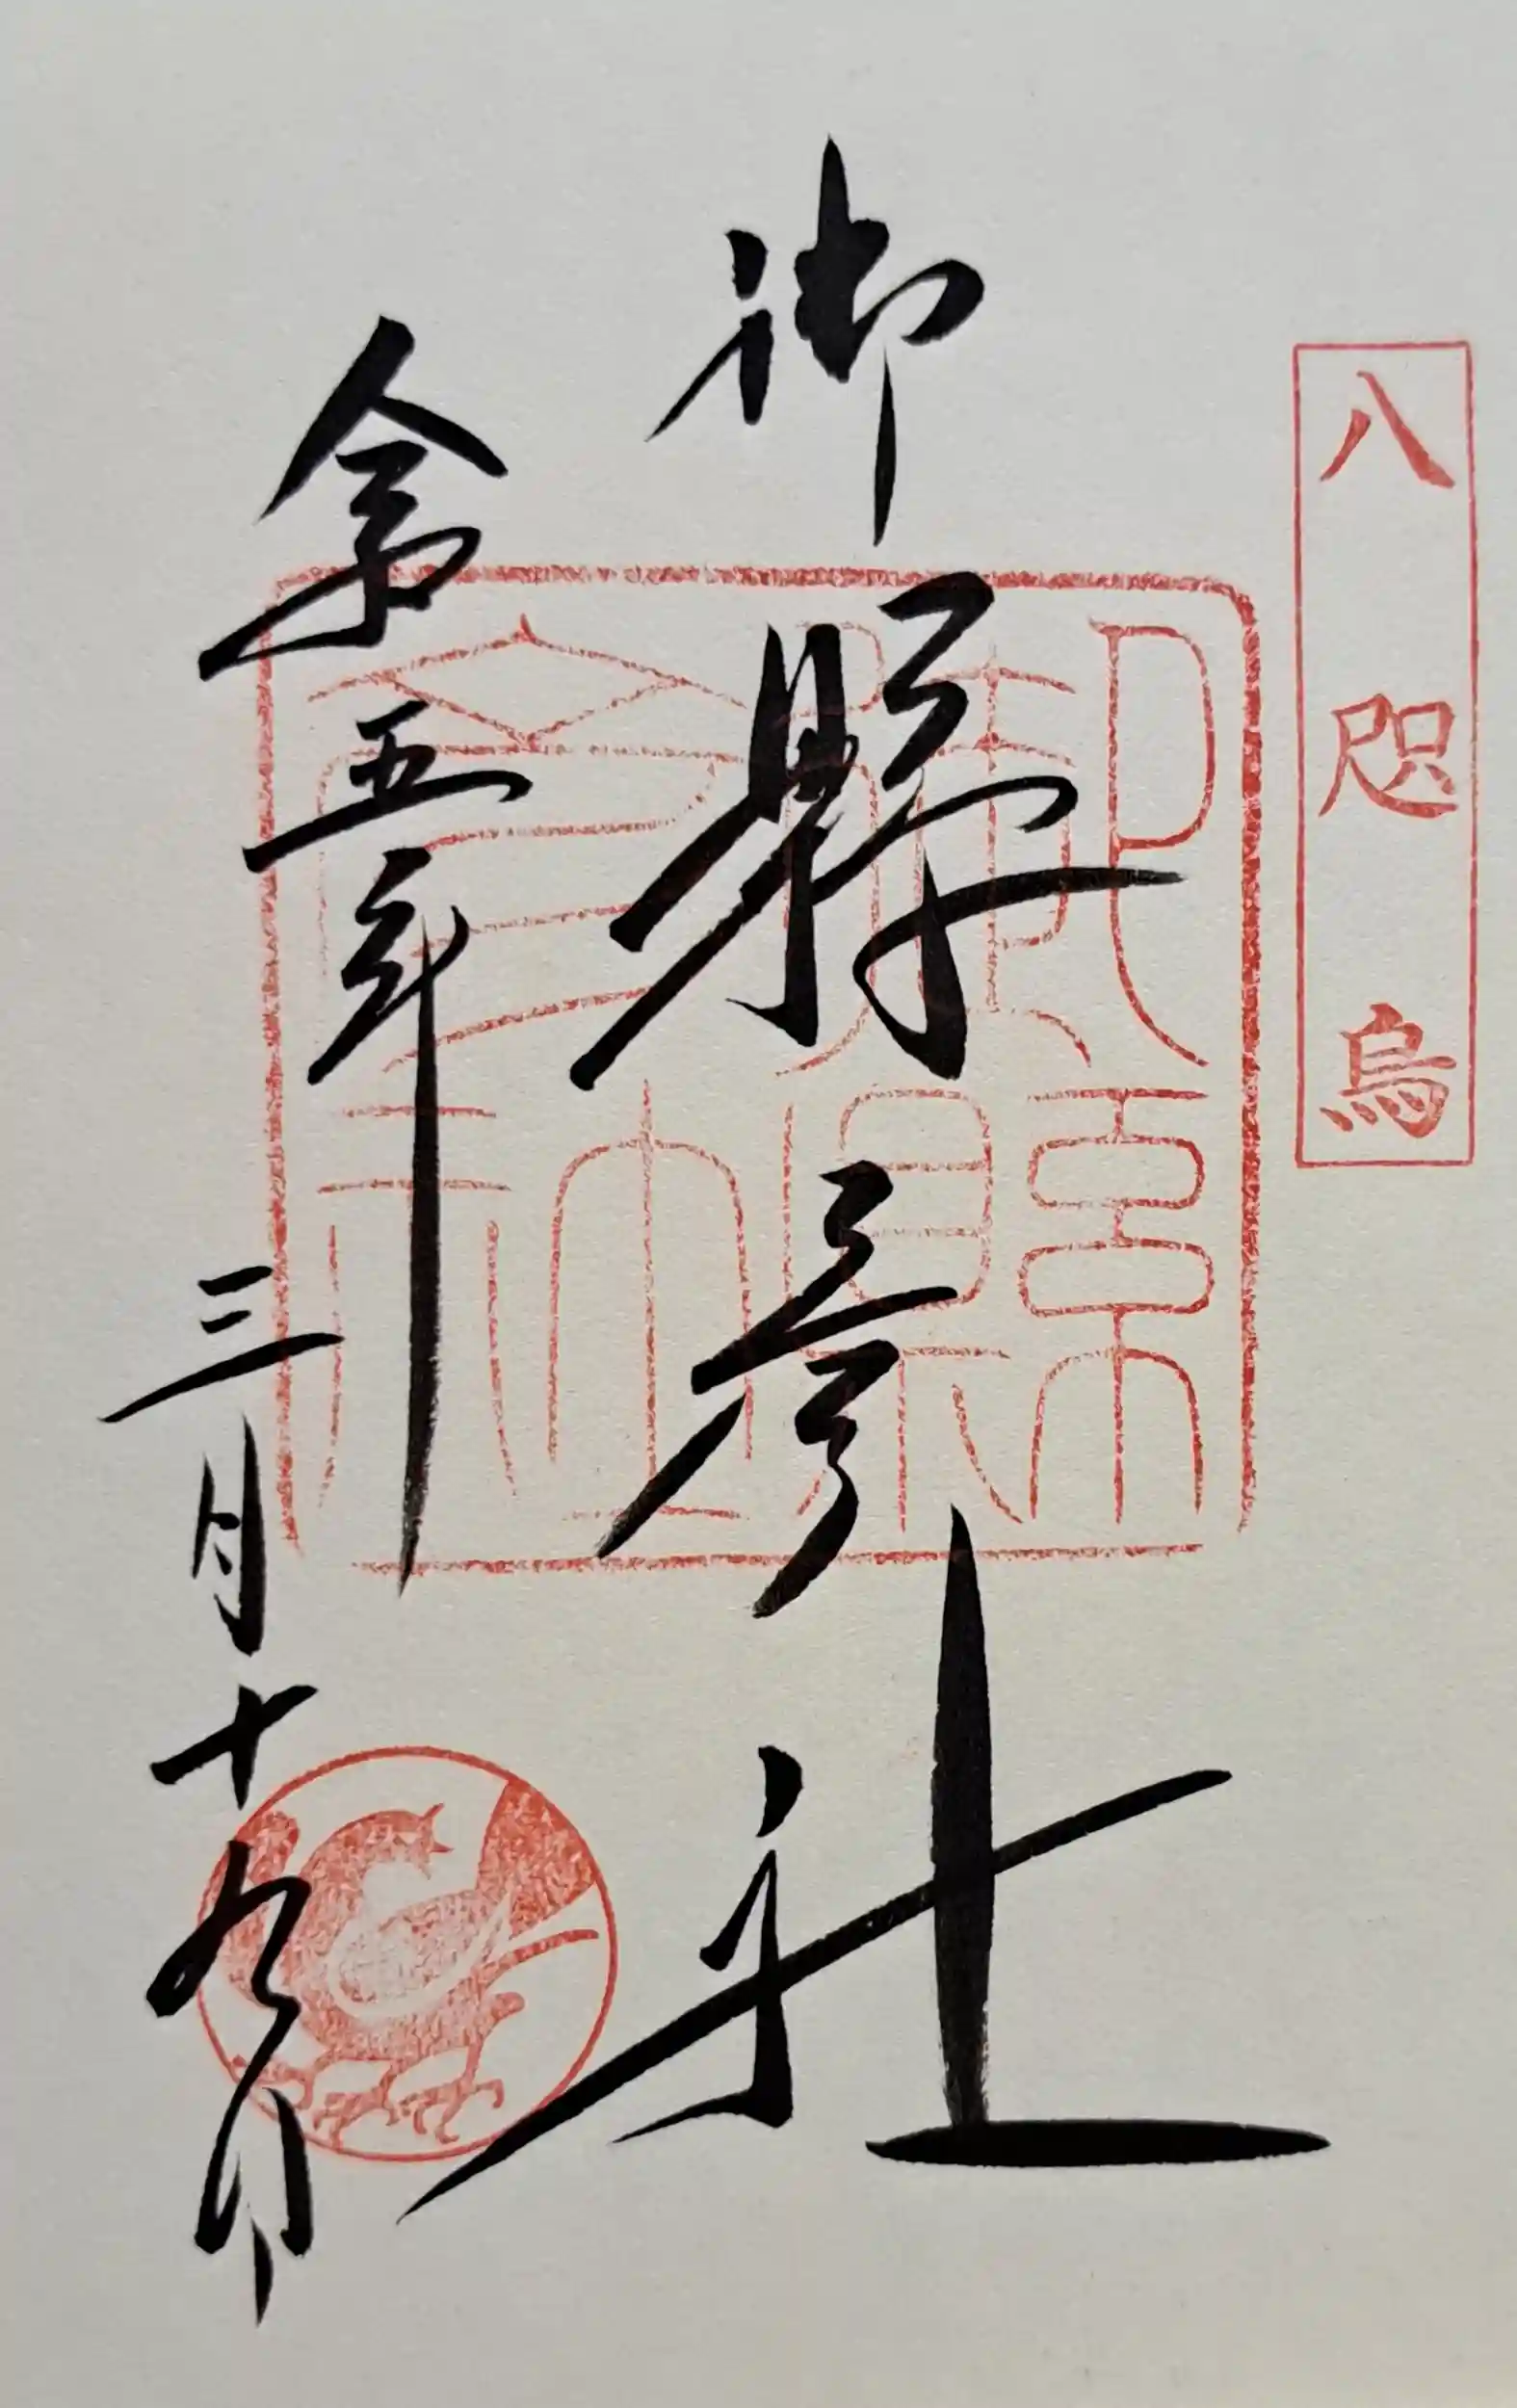 八咫烏
御縣彦社
御縣彦社
令和五年三月十九日